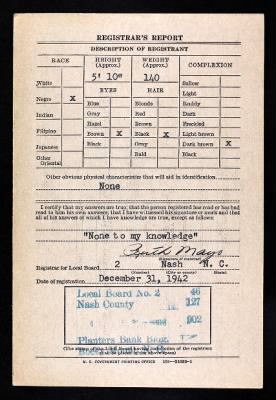 REGISTRAR'S REPORT
DESCRIPTION OF REGISTRANT
RACE
HEIGHT (Approx.)
WEIGHT (Approx.)
COMPLEXION
5' 10"
140
White
Sallow
EYES
HAIR
Light
Negro X
Blue
Blonde
Ruddy
Indian
Gray
Red
Dark
Filipino
Hazel
Brown
Freckled
Brown X
Black X
Light brown
Japanese
Black
Gray
Dark brown X
Other Oriental
Bald
Black
Other obvious physical characteristics that will aid in identification
None
I certify that my answers are true; that the person registered has read or has had
read to him his own answers; that I have witnessed his signature or mark and that
all of his answers of which I have knowledge are true, except as follows:
"None to my knowledge"
Ruth Mays
Registrar for Local Board 2 Nash N. C.
(Number) (City or county) (State)
Date of registration December 31, 1942
Local Board No. 2 46
Nash County 127
002
Planters Bank Bldg.
(The stamp of the Local Board having jurisdiction of the registrant
shall be placed in the above space)
U. S. GOVERNMENT PRINTING OFFICE